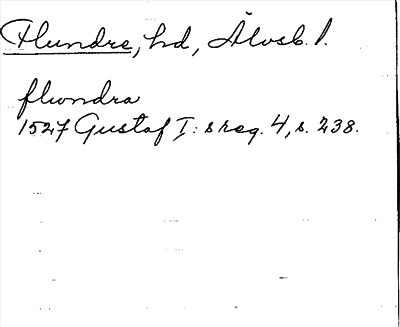 Flundre, hd, Älvsb. l.
flwndra
1527 Gustaf I: s reg. 4, s. 238.